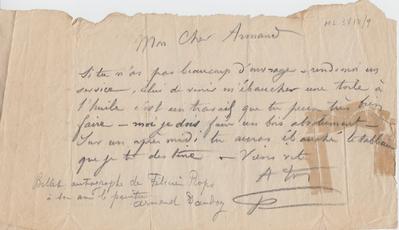 ML 3818/9
Mon Cher Armand
Si tu n'as pas beaucoup d'ouvrage – rends moi un
service, celui de venir m'ébaucher une toile à
l'huile c'est un travail que tu peux très bien
faire – moi je dois faire un bois absolument –
Sur un après midi, tu auras ébauché le tableau
que je te destine – Viens vite
A toi
Billet autographe de Félicien Rops
à son ami le peintre
Armand Dandoy